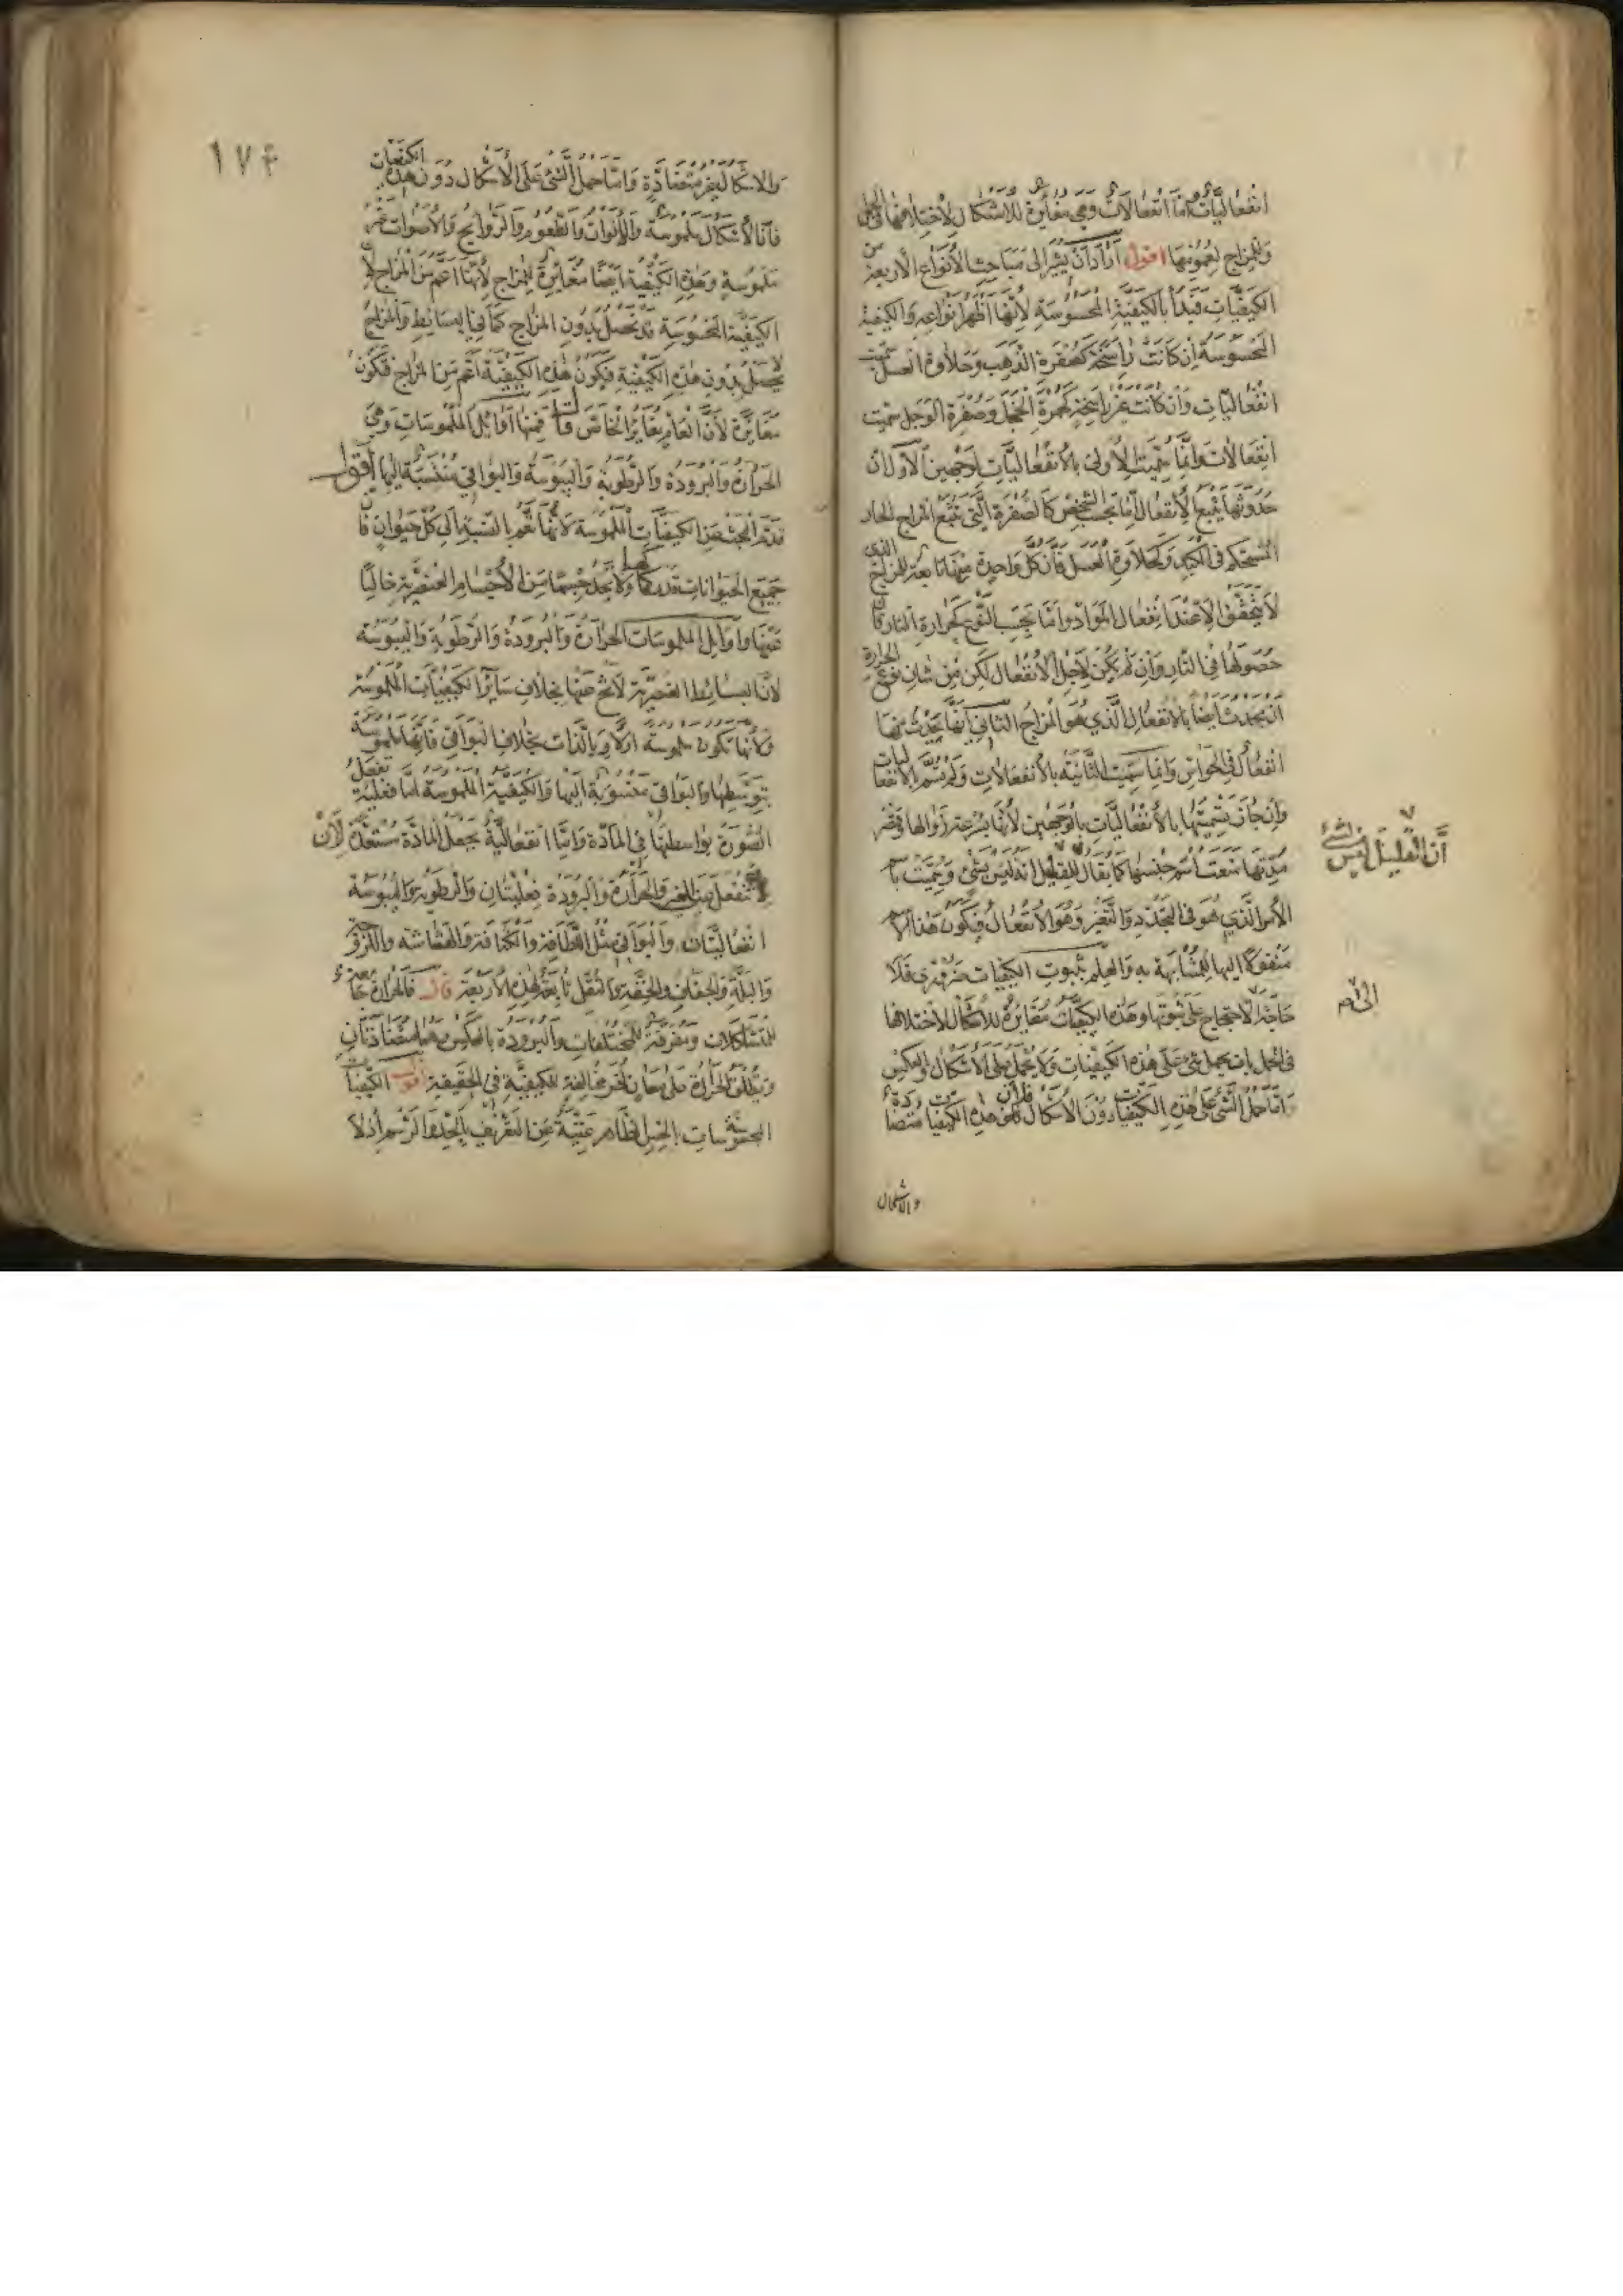 انفعاليات واما انفعالات وهي مغايرة للاشكال لاختلافها في الحمل
وللمزاج لعمومها اقول اراد ان يشير الى مباحث الأنواع الأربعة من
الكيفيات فبدأ بالكيفية المحسوسة لأنها أظهر أنواعه والكيفية
المحسوسة ان كانت راسخة كصفرة الذهب وحلاوة العسل سميت
انفعاليات وان كانت غير راسخة كحمرة الخجل وصفرة الوجل سميت
انفعالات وانما سميت الأولى بالانفعاليات لوجهين الأول ان
حدوثها يتبع الأنفعال اما بحسب الشخص كالصفرة التي تتبع المزاج الحار
المستحكم في الكبد وكحلاوة العسل فان كل واحدة منهما تابعة للمزاج الذي
لا يتحقق الا عند انفعال المواد واما بحسب النوع كحرارة النار فان
حصولها في النار وان لم يكن لاجل الانفعال لكن من شان نوع الحرارة
ان يحدث ايضا بالانفعال الذي هو المزاج الثاني انها يحدث منها
انفعال في الحواس وانما سميت الثانية بالأنفعالات ولم تسم بالانفعاليات
وان جاز تسميتها بالأنفعاليات بالوجهين لأنها لسرعة زوالها وقصر
مدتها منعت اسم جنسها كما يقال للقليل انه ليس بشئ وسميت باسم
الأمر الذي هو في التجدد والتغير وهو الانفعال فيكون هذا الاسم
منقولا اليها للمشابهة به والعلم بثبوت الكيفيات ضروري فلا
حاجة الى الاحتجاج على ثبوتها وهذه الكيفيات مغايرة للاشكال لاختلافها
في الحمل بان يحمل شئ على هذه الكيفيات ولا يحمل على الأشكال وبالعكس
واما حمل الشئ على هذه الكيفيات دون الأشكال فلأن هذه الكيفيات متضادة
والاشكال
أن القليل ليس بشئ
١٧٤
والاشكال غير متضادة واما حمل الشئ على الأشكال دون هذه الكيفيات
فلأن الأشكال ملموسة والألوان والطعوم والروايح والأصوات غير
ملموسة وهذه الكيفية ايضا مغايرة للمزاج لأنها اعم من المزاج لأن
الكيفية المحسوسة قد تحصل بدون المزاج كما في البسائط والمزاج
لا يحصل بدون هذه الكيفية فيكون هذه الكيفية أعم من المزاج فتكون
مغايرة لأن العام يغاير الخاص قال فمنها اوائل الملموسات وهي
الحرارة والبرودة والرطوبة واليبوسة والبواقي منتسبة اليها أقول
قدم البحث عن الكيفيات الملموسة لأنها أعم بالنسبة الى كل حيوان فان
جميع الحيوانات تدركها ولا نجد جسما من الأجسام العنصرية خاليا
عنها واوايل الملموسات الحرارة والبرودة والرطوبة واليبوسة
لأن البسائط العنصرية لا تخ عنها بخلاف سائر الكيفيات الملموسة
ولأنها تكون ملموسة اولا وبالذات بخلاف البواقي فانها ملموسة
بتوسطها والبواقي منسوبة اليها والكيفية الملموسة اما فعلية تفعل
الصورة بواسطتها في المادة واما انفعالية تجعل المادة مستعدة لأن
تنفعل عن الغير والحرارة والبرودة فعليتان والرطوبة واليبوسة
انفعاليتان والبواقي مثل اللطافة والكثافة والهشاشة واللزوجة
والبلة والجفاف والخفة والثقل تابعة لهذه الأربعة قال فالحرارة جامعة
للمتشاكلات ومفرقة للمختلفات والبرودة بالعكس وهما متضادتان
ويطلق الحرارة على معان اخر مخالفة للكيفية في الحقيقة اقول الكيفيات
المحسوسات بالحس الظاهر غنية عن التعريف بالحد والرسم اذ لا